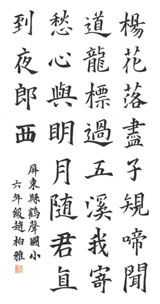 楊花落盡子規啼聞
道龍標過五溪我寄
愁心與明月随君直
到夜郎西
屏東縣鶴聲國小
六年級趙柏雅